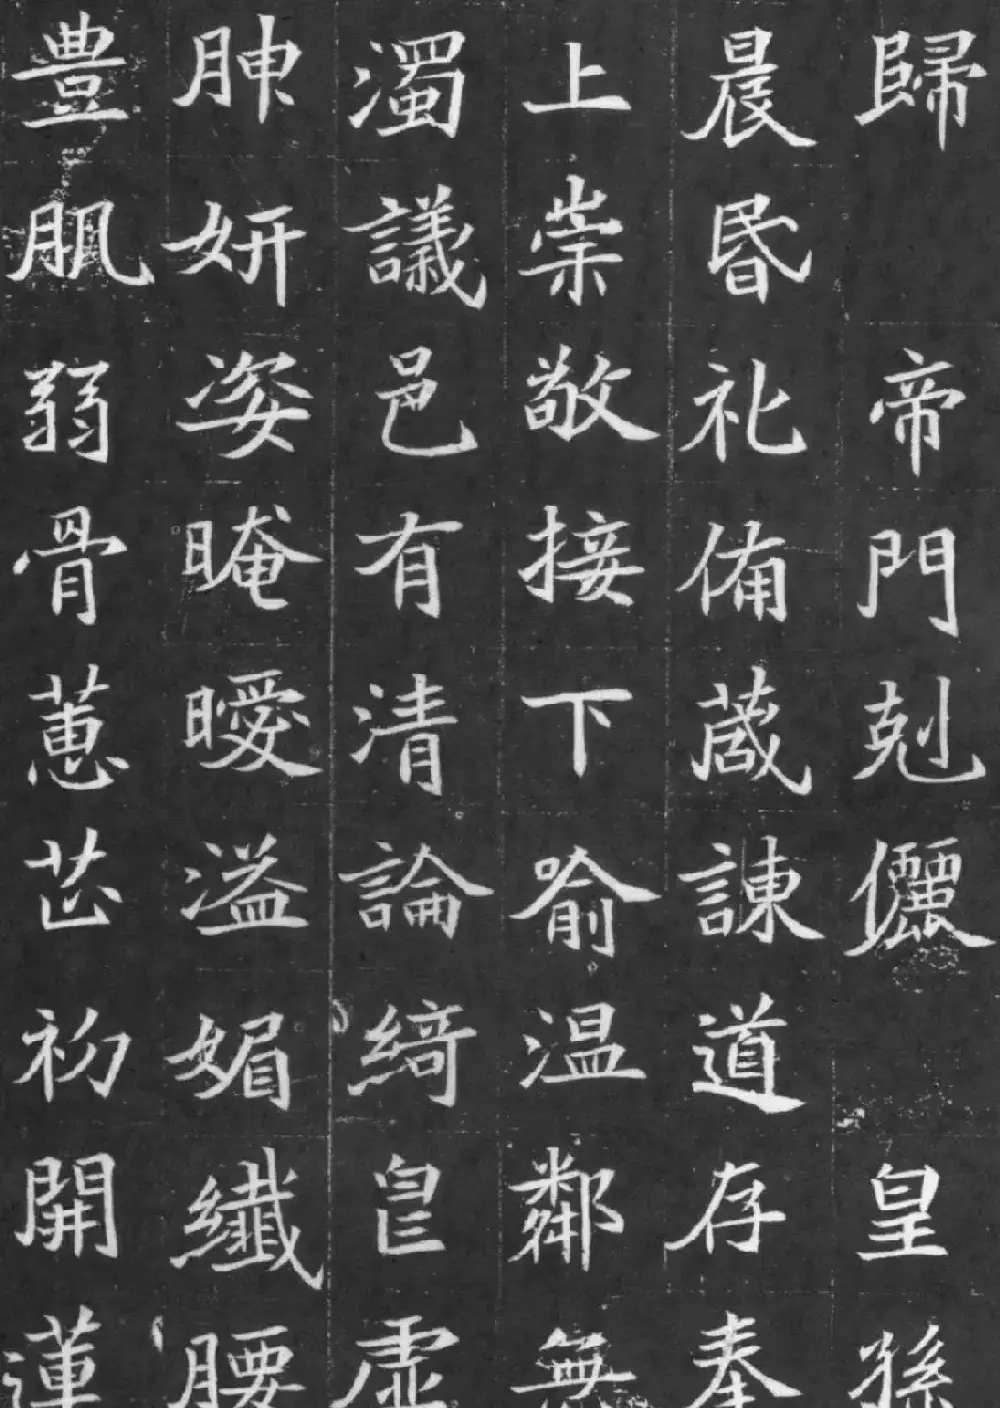 歸 帝門尅儷 皇孫
晨昬礼俻葴諌道存奉
上崇敬接下喻温鄰無
濁議邑有清論綺皀虛
胂妍姿晻曖溢媚纖腰
豊肌弱骨蕙芷初開蓮